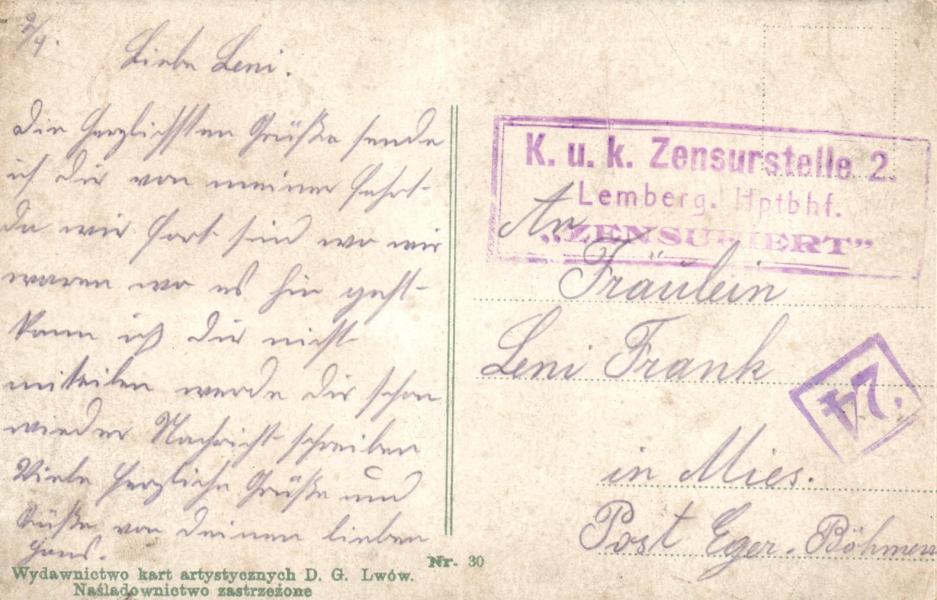 9/4.
Liebe Leni.
Die herzlichsten Grüße sende
ich dir von meiner Fahrt
da wir fort sind wo wir
waren wo es hin geht
kann ich dir nicht
mitteilen werde dir schon
wieder Nachricht schreiben
Viele herzliche Grüße und
Küße von deinen lieben
Hans.
Wydawnictwo kart artystycznych D. G. Lwów.
Naśladownictwo zastrzeżone
Nr. 30
K. u. k. Zensurstelle 2.
Lemberg. Hptbhf.
„ZENSURIERT"
An
Fräulein
Leni Frank
in Mies.
Post Eger. Böhmen